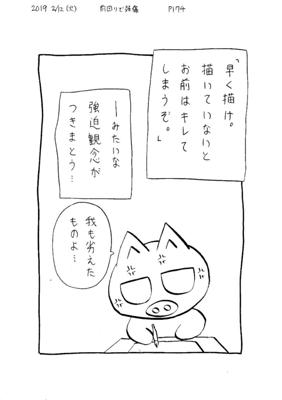 2019 2/12 (火) 前回りで鼓傷 P174
「早く描け。
描いていないと
お前はキレて
しまうぞ。」
―みたいな
強迫観念が
つきまとう…
我も劣えた
ものよ…